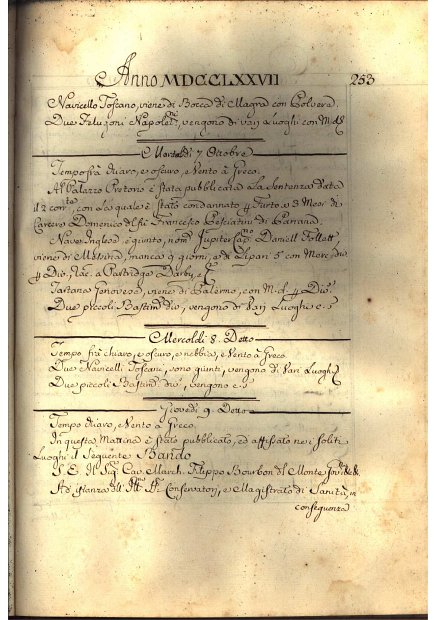 Anno MDCCLXXVII 253
Navicello Toscano, viene di Bocca di Magra con Polvere.
Due Feluconi Napolet.ni, vengono di varj Luoghi con M.d.
Martedì 7 Ottobre
Tempo frà chiaro, e oscuro, e Vento à Greco.
Al Palazzo Pretorio è stata pubblicata la Sentenza data
il 2 corr.te, con la quale è stato condannato Furto a 3 Mesi di
Carcere Domenico del fù Francesco Pesciatini di Panana
Nave Inglese è giunta, nom.ta Jupiter Cap.no Daniell Follett
viene di Messina, manca 9 giorni, e di Lipari 5 con Merc. div.
Div. Rac. a Partridge Darby, e C.
Tartana Genovese, viene di Palermo, con M.d. Div.
Due piccoli Bastim. div. vengono di varj Luoghi c. s.
Mercoldì 8. Detto
Tempo frà chiaro, e oscuro, e nebbia, e Vento à Greco
Due Navicelli Toscani, sono giunti, vengono di varj Luoghi
Due piccoli Bastim. div. vengono c. s
Giovedì 9. Detto
Tempo chiaro, e Vento à Greco.
In questa Mattina è stato pubblicato, ed affissato nei soliti
Luoghi il seguente Bando
S. E. Il Sig. Cav. March. Filippo Bourbon del Monte
Ad istanza dell' Conservatori, e Magistrato di Sanità, in
conseguenza